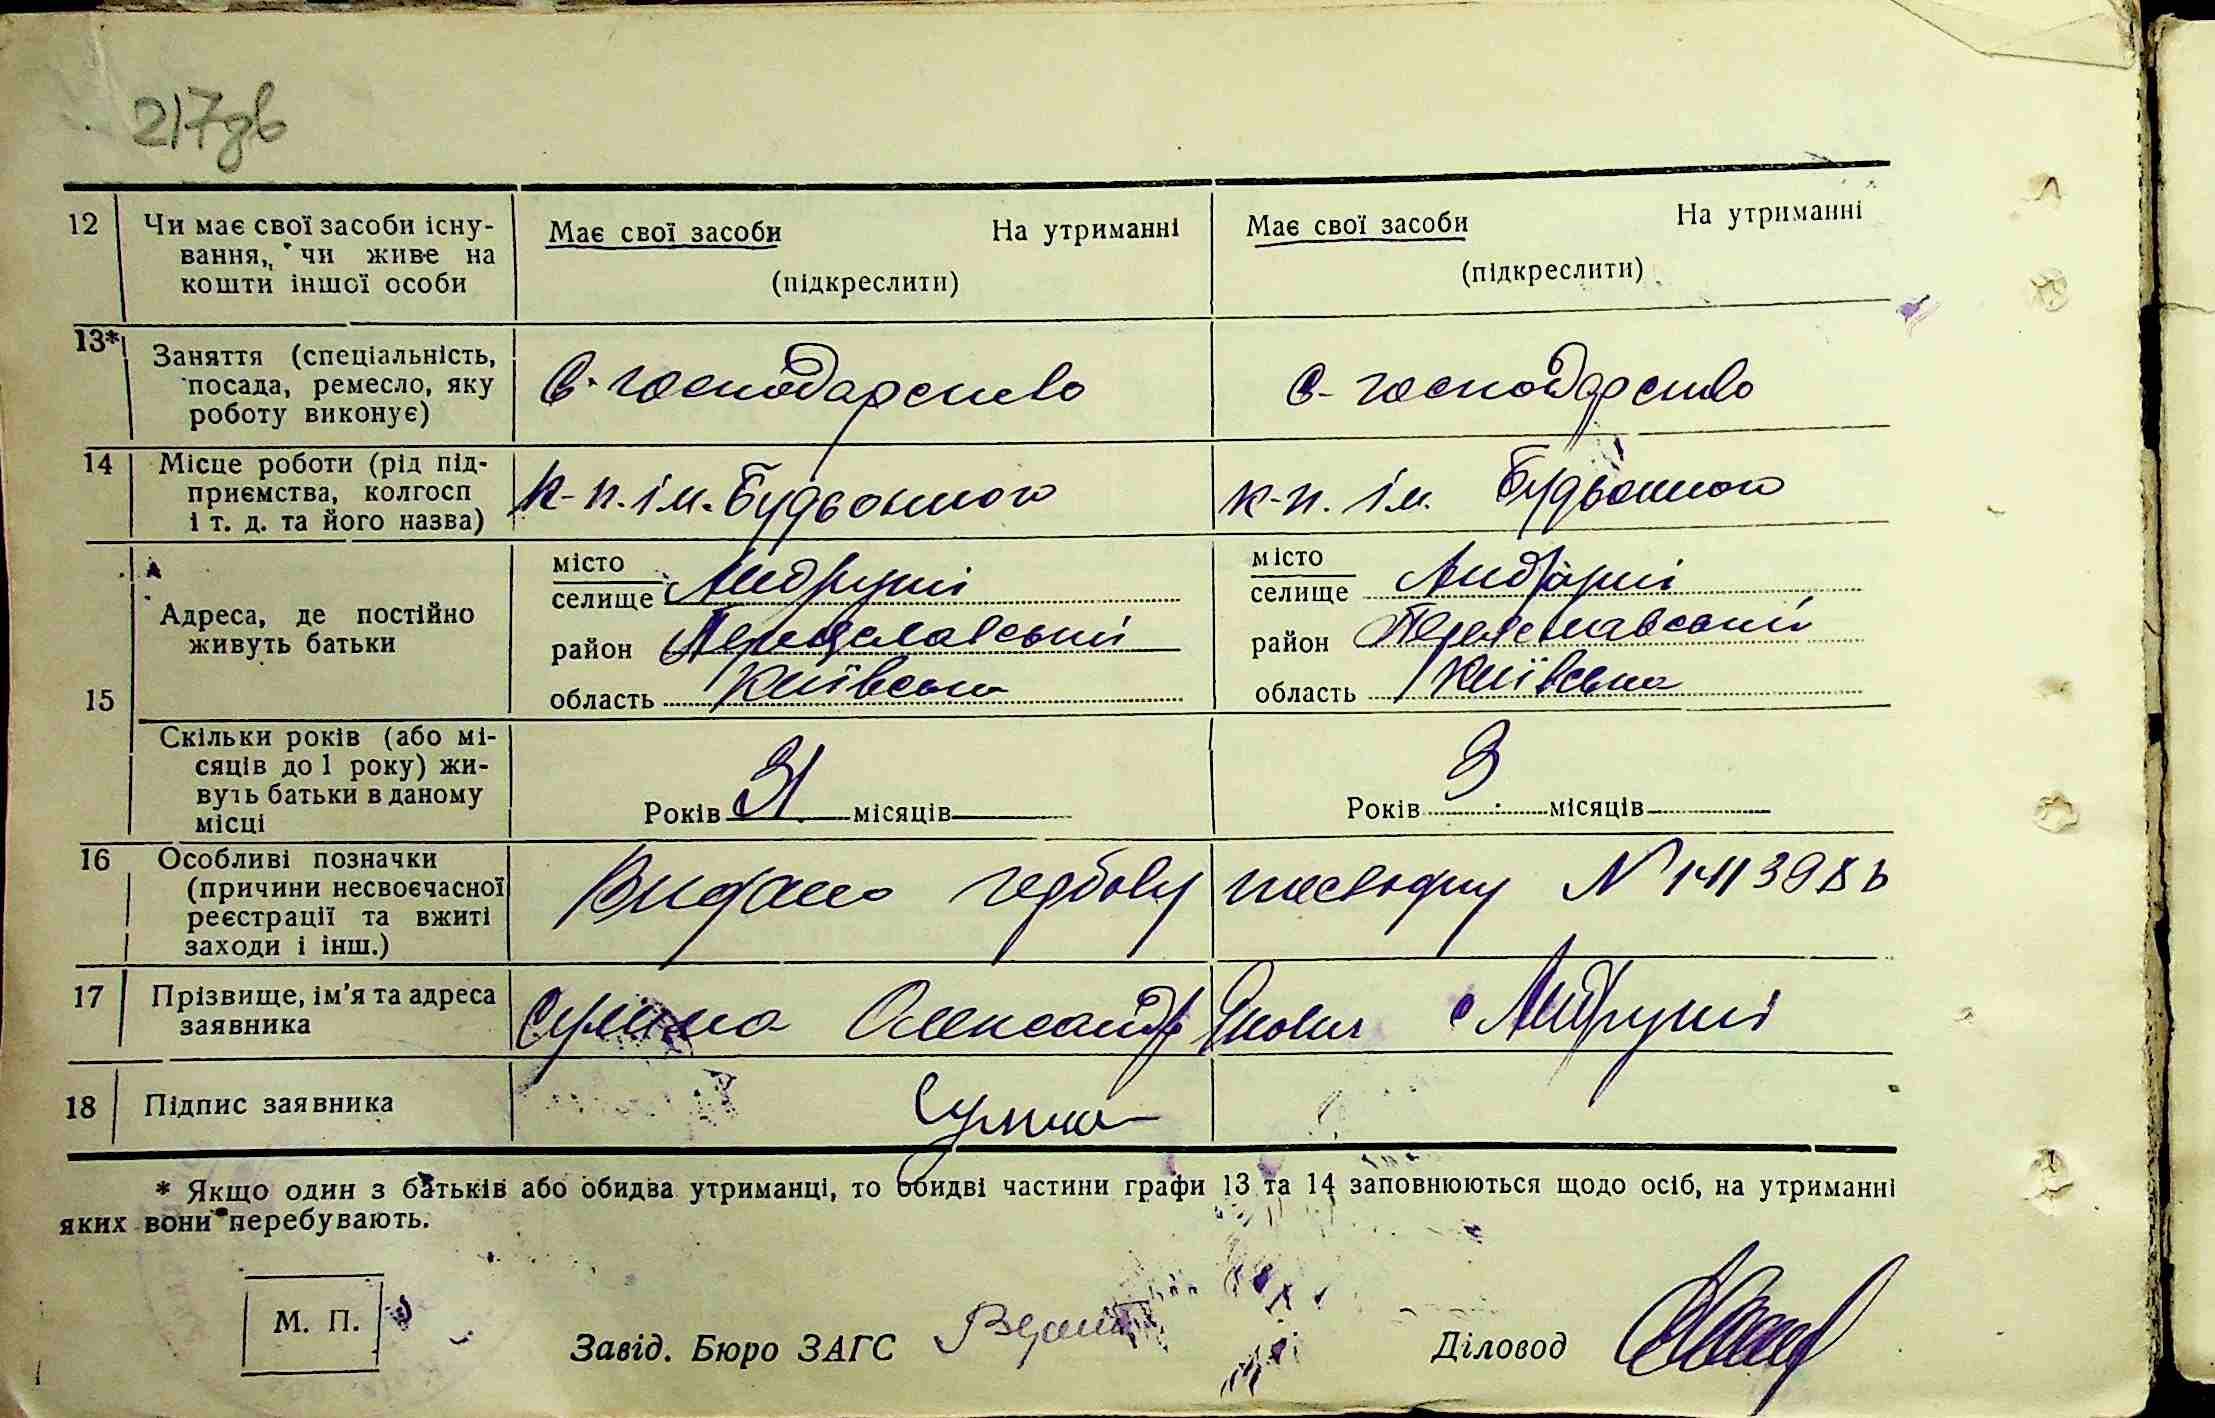 217зв
12 Чи має свої засоби існу- Має свої засоби На утриманні Має свої засоби На утриманні
вання, чи живе на
кошти іншої особи (підкреслити) (підкреслити)
13* Заняття (спеціальність,
посада, ремесло, яку с-господарство с-господарство
роботу виконує)
14 Місце роботи (рід під-
приємства, колгосп к-п. ім. Будьонного к-п. ім. Будьонного
і т. д. та його назва)
15 Адреса, де постійно
живуть батьки
місто
селище Андруші
район Переяславський
область Київська
місто
селище Андруші
район Переяславський
область Київська
Скільки років (або мі-
сяців до 1 року) жи-
вуть батьки в даному
місці
Років 31 місяців Років 3 місяців
16 Особливі позначки
(причини несвоєчасної Видано гербову N 141398
реєстрації та вжиті
заходи і інш.)
17 Прізвище, ім'я та адреса
заявника Суліма Олександр Якович с Андруші
18 Підпис заявника Суліма
* Якщо один з батьків або обидва утриманці, то обидві частини графи 13 та 14 заповнюються щодо осіб, на утриманні
яких вони перебувають.
М. П.
Завід. Бюро ЗАГС Діловод